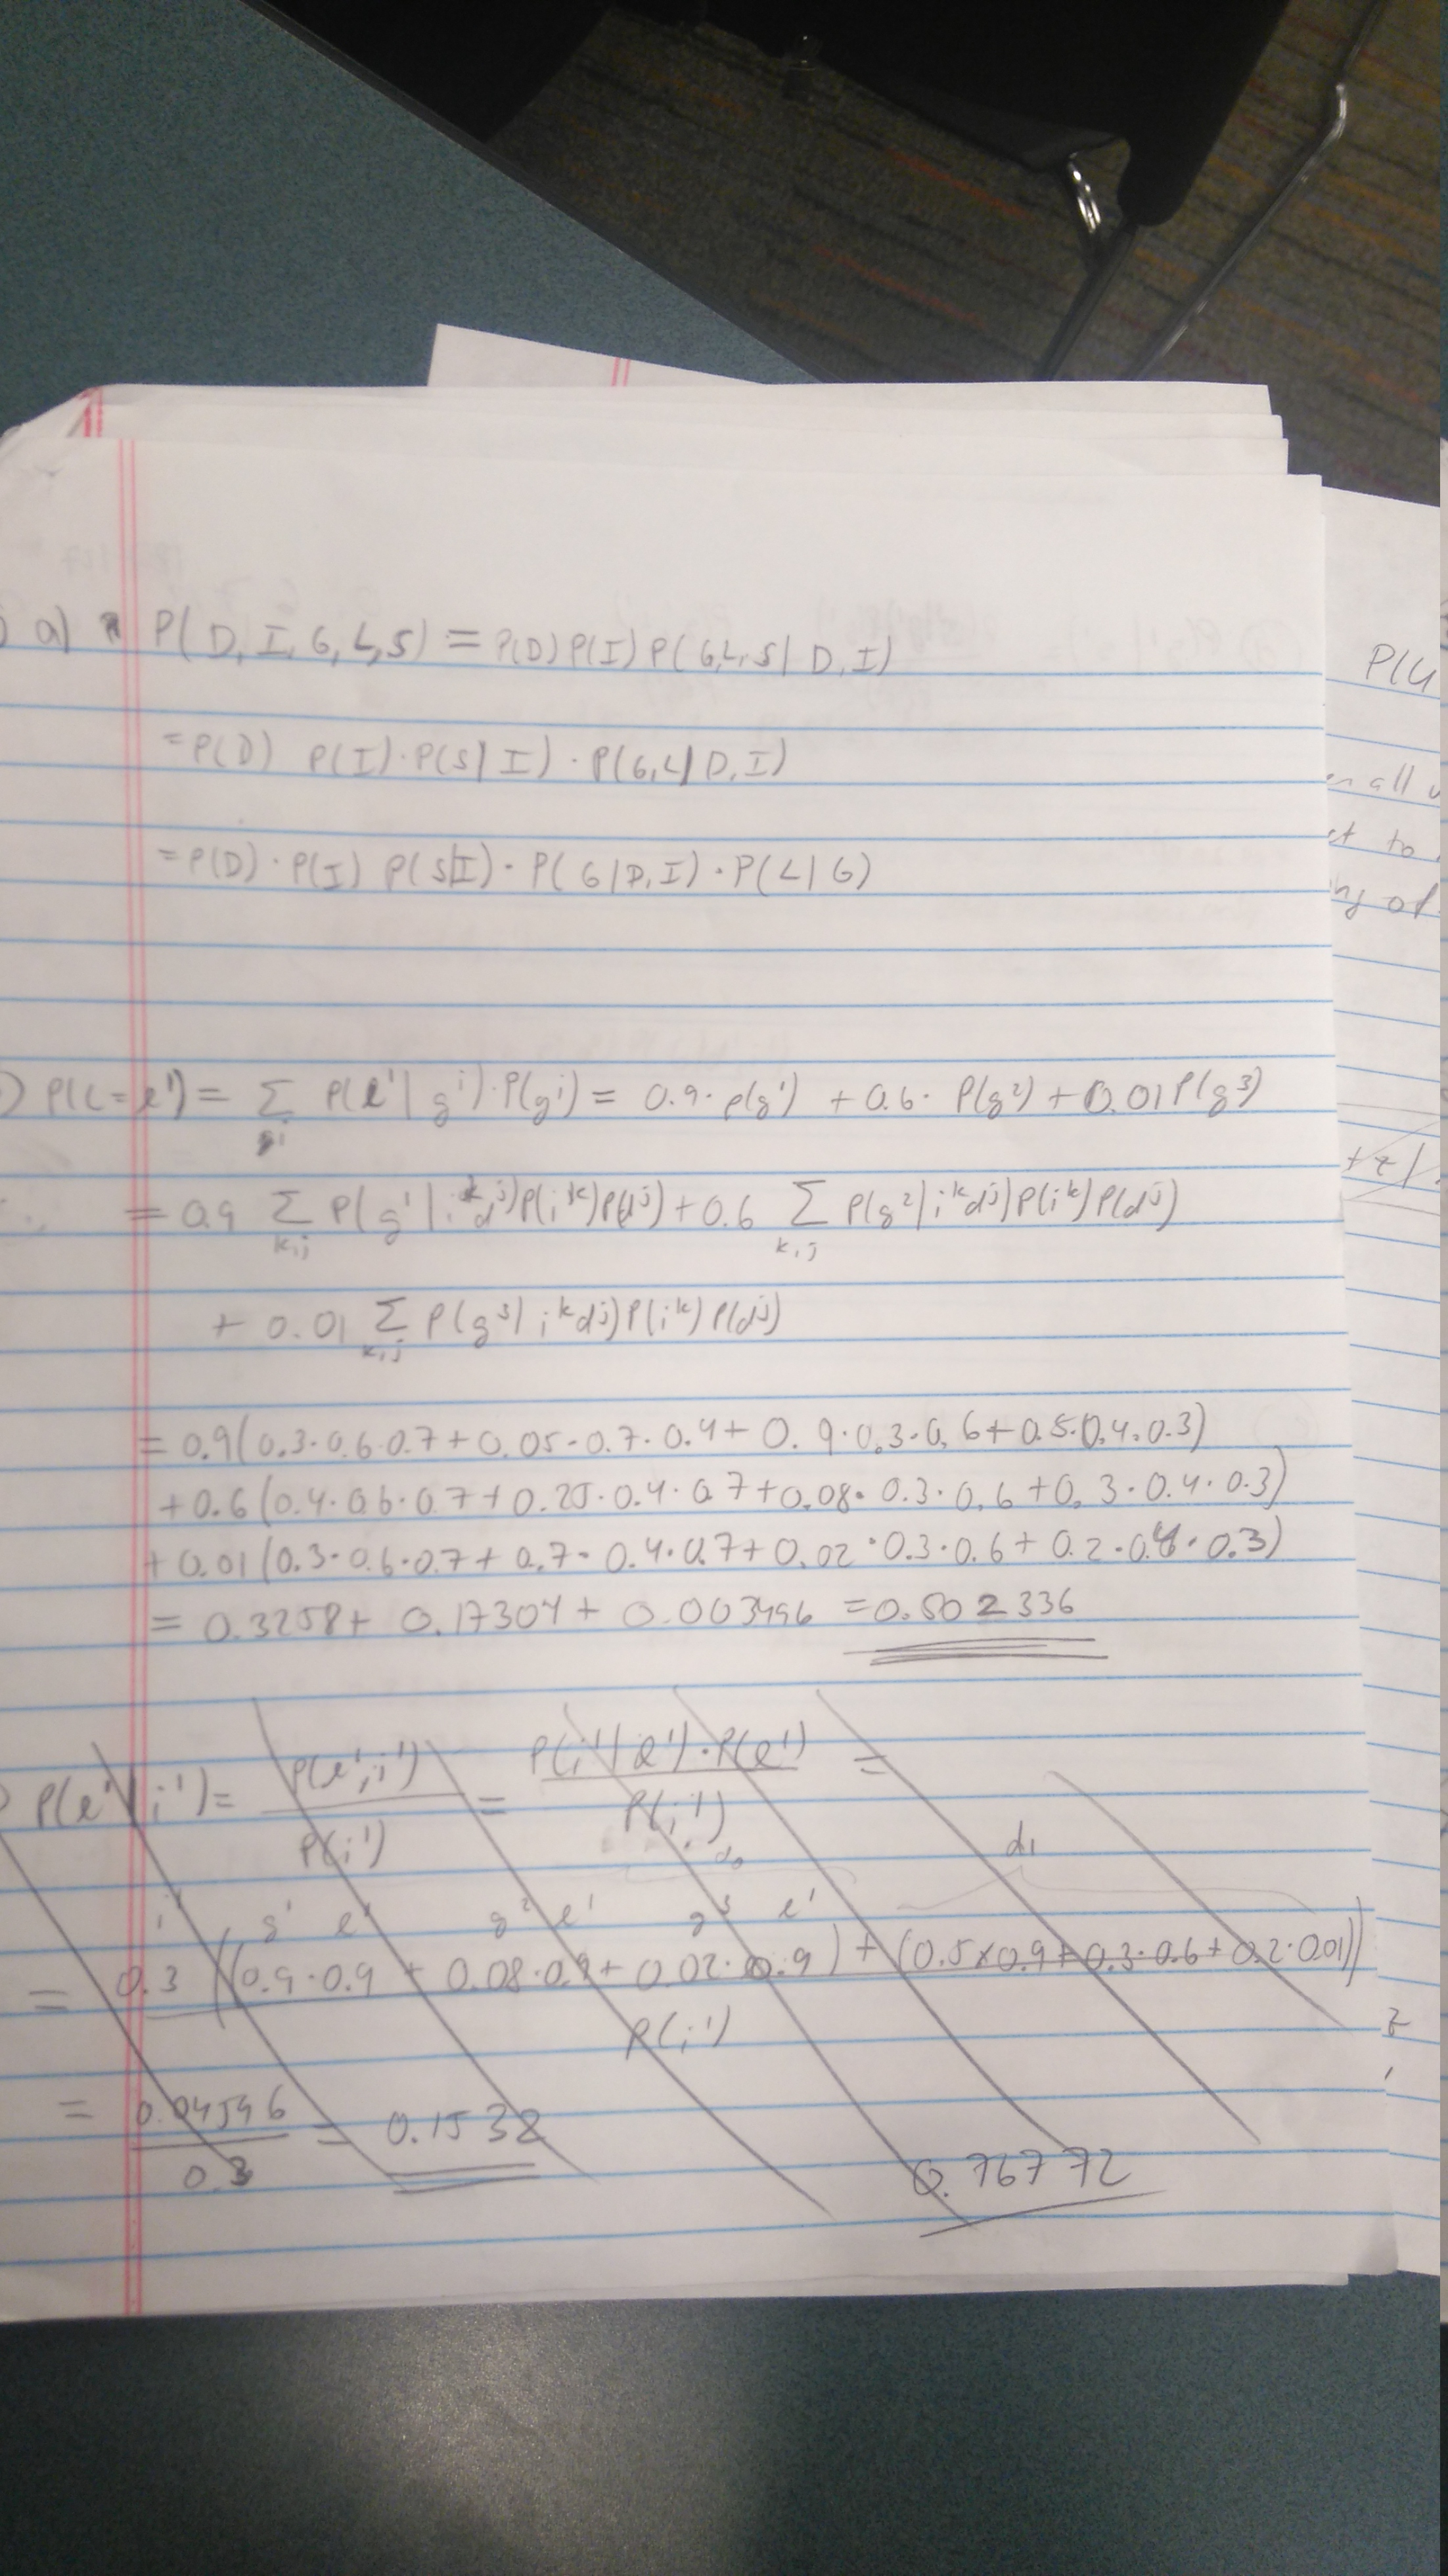 a) P(D, I, G, L, S) = P(D) P(I) P(G, L, S | D, I)
= P(D) P(I) · P(S | I) · P(G, L | D, I)
= P(D) · P(I) P(S | I) · P(G | D, I) · P(L | G)
) P(L = l¹) = Σ P(l¹ | gⁱ) · P(gⁱ) = 0.9 · P(g¹) + 0.6 · P(g²) + 0.01 P(g³)
gⁱ
= 0.9 Σ P(g¹ | iᵏ dʲ) P(iᵏ) P(dʲ) + 0.6 Σ P(g² | iᵏ dʲ) P(iᵏ) P(dʲ)
k, j k, j
+ 0.01 Σ P(g³ | iᵏ dʲ) P(iᵏ) P(dʲ)
k, j
= 0.9 (0.3 · 0.6 · 0.7 + 0.05 · 0.7 · 0.4 + 0.9 · 0.3 · 0.6 + 0.5 · 0.4 · 0.3)
+ 0.6 (0.4 · 0.6 · 0.7 + 0.25 · 0.4 · 0.7 + 0.08 · 0.3 · 0.6 + 0.3 · 0.4 · 0.3)
+ 0.01 (0.3 · 0.6 · 0.7 + 0.7 · 0.4 · 0.7 + 0.02 · 0.3 · 0.6 + 0.2 · 0.4 · 0.3)
= 0.3258 + 0.17304 + 0.003496 = 0.502336
P(l¹ | i¹) = P(l¹, i¹) / P(i¹) = P(i¹ | l¹) · P(l¹) / P(i¹) =
d₀ d₁
i¹ g¹ l¹ g² l¹ g³ l¹
= 0.3 ((0.9 · 0.9 + 0.08 · 0.9 + 0.02 · 0.9) + (0.5 × 0.9 + 0.3 · 0.6 + 0.2 · 0.01))
P(i¹)
= 0.04596 / 0.3 = 0.1532
0.76772
P(
all
to
of